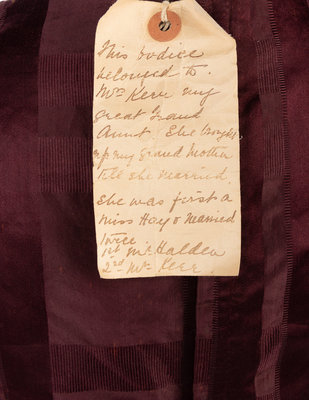 This bodice
belonged to.
Mrs Kerr my
great Grand
Aunt. She brought
up my Grand Mother
till she married.
She was first a
Miss Hay & married
twice
1st Mr Halden
2nd Mr Kerr.